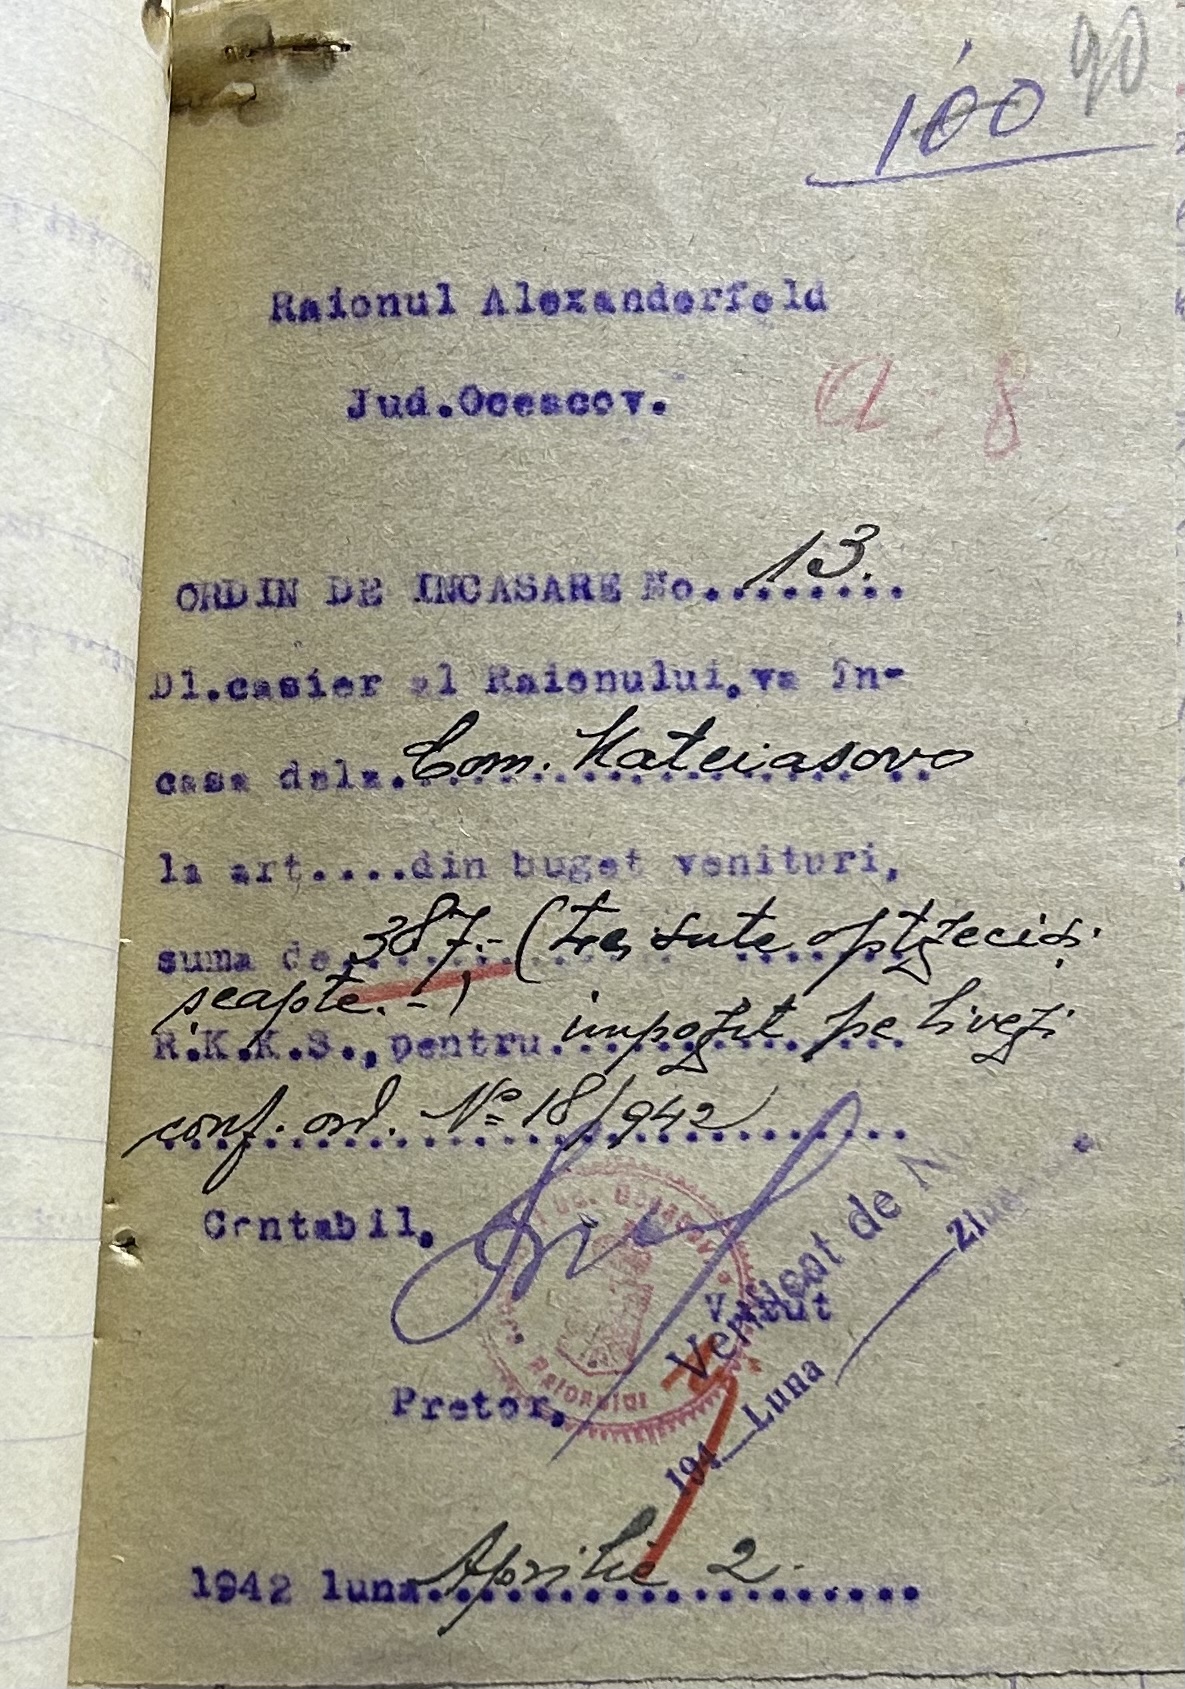 90
100
Raionul Alexanderfeld
a. 8
Jud.Oceacov.
ORDIN DE INCASARE No. 13.
Dl.casier al Raionului,va în-
casa dela Com. Mateiasovo
la art....din buget venituri,
suma de 387.- (trei sute optzeci și
șeapte.-)
R.K.K.S., pentru impozit pe livezi
conf. ord. No 18/942
Contabil,
Verificat de
Ziua
Văzut
Pretor,
194 Luna
1942 luna Aprilie 2.